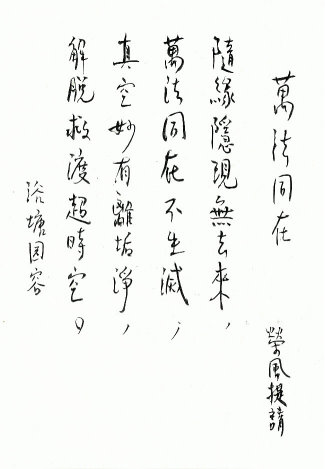 萬法同在
榮風撰請
隨緣隱現無去來，
萬法同在不生滅，
真空妙有離垢淨，
解脫救渡超時空。
浴塘因容